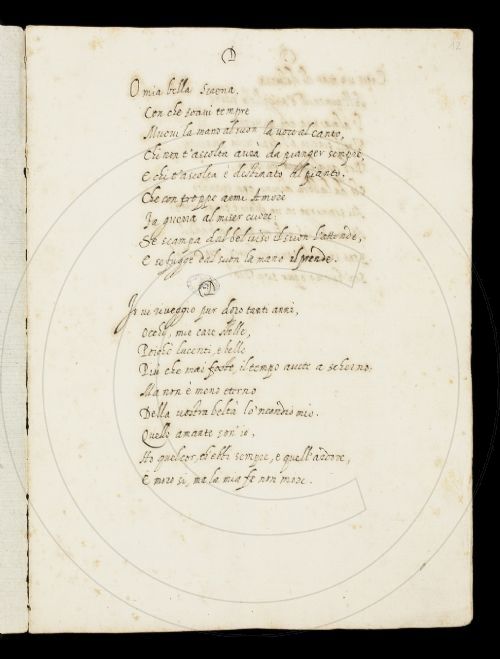 12
O mia bella Sirena,
Con che soavi tempre
Muovi la mano al suon la voce al canto,
Chi non t'ascolta avrà da pianger sempre,
E chi t'ascolta è destinato al pianto.
Che con troppe armi Amore
Fa guerra al miser cuore:
Se scampa dal bel viso il suon l'attende,
E se fugge dal suon la mano il prende.
Io vi riveggio pur dopo tanti anni,
Occhi, mie care stelle,
Perché lucenti, e belle
Più che mai foste, il tempo avete a scherno.
Ma non è meno eterno
Della vostra beltà lo 'ncendio mio.
Quello amante son' io,
Ho quel cor, ch'ebbi sempre, e quell'ardore,
E moro sì, ma la mia fé non more.